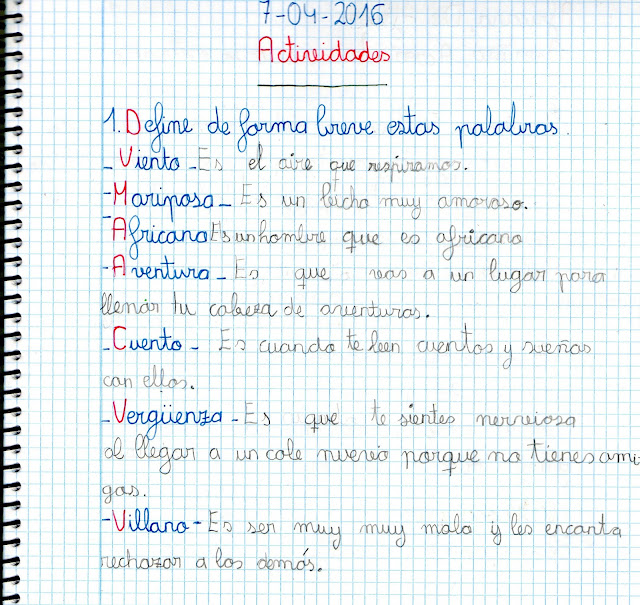 7-04-2016
Actividades
1. Define de forma breve estas palabras.
-Viento - Es el aire que respiramos.
-Mariposa - Es un bicho muy amoroso.
-Africano Es un hombre que es africano
-Aventura - Es que vas a un lugar para
llenar tu cabeza de aventuras.
-Cuento - Es cuando te leen cuentos y sueñas
con ellos.
-Vergüenza - Es que te sientes nerviosa
al llegar a un cole nuevo porque no tienes ami
gos.
-Villano - Es ser muy muy malo y les encanta
rechazar a los demós.